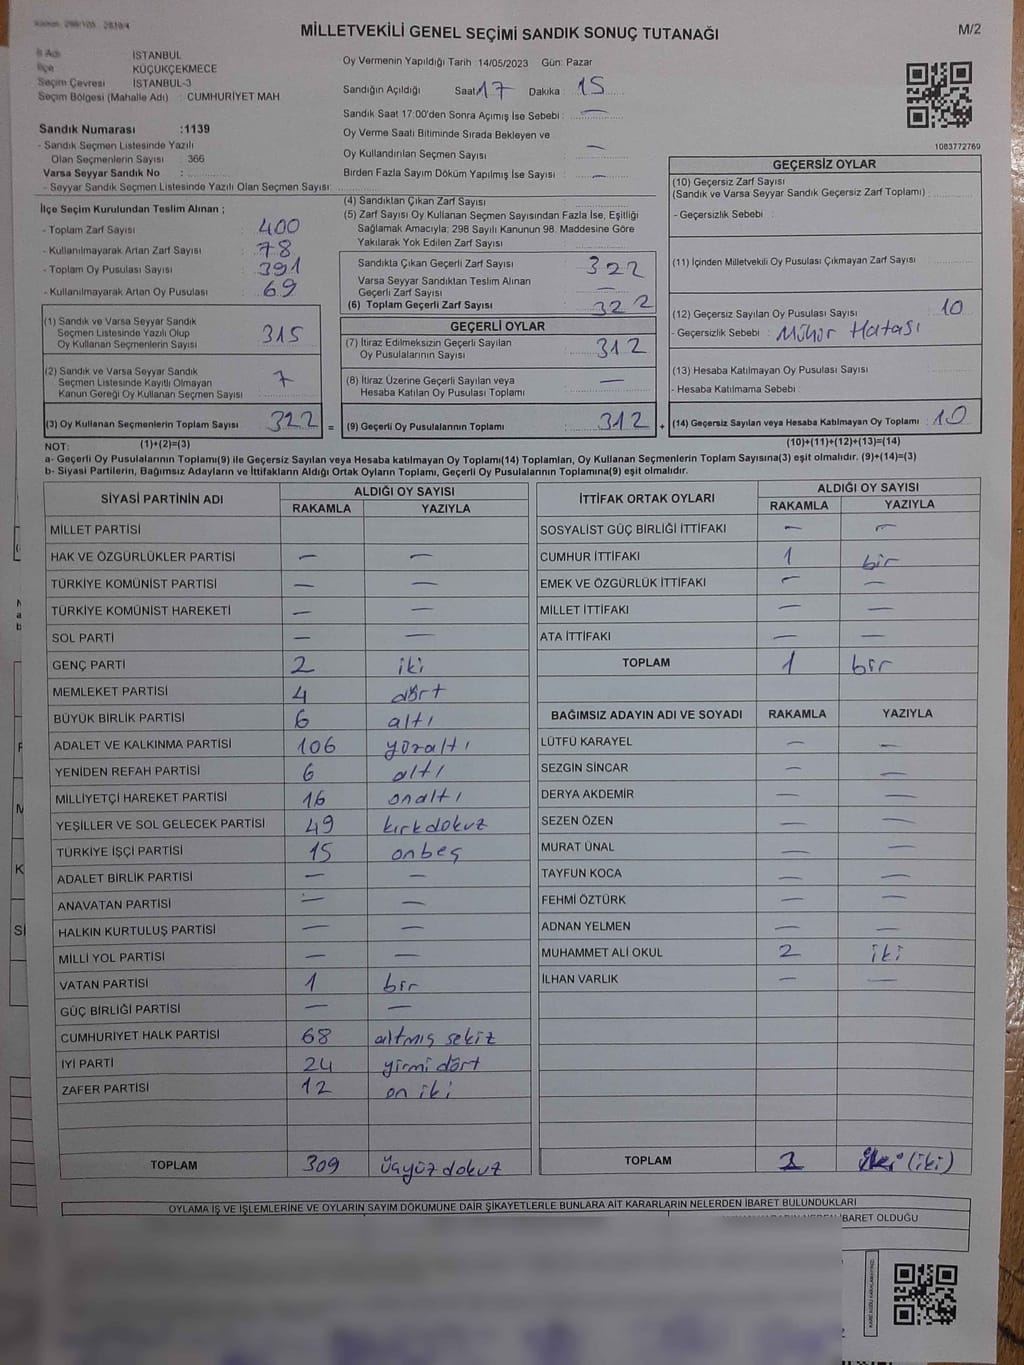 MİLLETVEKİLİ GENEL SEÇİMİ SANDIK SONUÇ TUTANAĞI
M/2
İl Adı : İSTANBUL
İlçe : KÜÇÜKÇEKMECE
Seçim Çevresi : İSTANBUL-3
Seçim Bölgesi (Mahalle Adı) : CUMHURİYET MAH
Sandık Numarası :1139
- Sandık Seçmen Listesinde Yazılı
Olan Seçmenlerin Sayısı : 366
Varsa Seyyar Sandık No :
- Seyyar Sandık Seçmen Listesinde Yazılı Olan Seçmen Sayısı:
Oy Vermenin Yapıldığı Tarih : 14/05/2023 Gün: Pazar
Sandığın Açıldığı Saat 17 Dakika : 15
Sandık Saat 17:00'den Sonra Açımış İse Sebebi : —
Oy Verme Saati Bitiminde Sırada Bekleyen ve
Oy Kullandırılan Seçmen Sayısı : —
Birden Fazla Sayım Döküm Yapılmış İse Sayısı : —
1083772769
İlçe Seçim Kurulundan Teslim Alınan ;
- Toplam Zarf Sayısı : 400
- Kullanılmayarak Artan Zarf Sayısı : 78
- Toplam Oy Pusulası Sayısı : 391
- Kullanılmayarak Artan Oy Pusulası : 69
(1) Sandık ve Varsa Seyyar Sandık
Seçmen Listesinde Yazılı Olup
Oy Kullanan Seçmenlerin Sayısı : 315
(2) Sandık ve Varsa Seyyar Sandık
Seçmen Listesinde Kayıtlı Olmayan
Kanun Gereği Oy Kullanan Seçmen Sayısı : 7
(3) Oy Kullanan Seçmenlerin Toplam Sayısı : 322
(4) Sandıktan Çıkan Zarf Sayısı :
(5) Zarf Sayısı Oy Kullanan Seçmen Sayısından Fazla İse, Eşitliği
Sağlamak Amacıyla; 298 Sayılı Kanunun 98. Maddesine Göre
Yakılarak Yok Edilen Zarf Sayısı :
Sandıkta Çıkan Geçerli Zarf Sayısı : 322
Varsa Seyyar Sandıktan Teslim Alınan
Geçerli Zarf Sayısı : —
(6) Toplam Geçerli Zarf Sayısı : 322
GEÇERLİ OYLAR
(7) İtiraz Edilmeksizin Geçerli Sayılan
Oy Pusulalarının Sayısı : 312
(8) İtiraz Üzerine Geçerli Sayılan veya
Hesaba Katılan Oy Pusulası Toplamı : —
= (9) Geçerli Oy Pusulalarının Toplamı : 312
GEÇERSİZ OYLAR
(10) Geçersiz Zarf Sayısı
(Sandık ve Varsa Seyyar Sandık Geçersiz Zarf Toplamı) :
- Geçersizlik Sebebi :
(11) İçinden Milletvekili Oy Pusulası Çıkmayan Zarf Sayısı :
(12) Geçersiz Sayılan Oy Pusulası Sayısı : 10
- Geçersizlik Sebebi : Mühür Hatası
(13) Hesaba Katılmayan Oy Pusulası Sayısı :
- Hesaba Katılmama Sebebi :
+ (14) Geçersiz Sayılan veya Hesaba Katılmayan Oy Toplamı : 10
NOT: (1)+(2)=(3) (10)+(11)+(12)+(13)=(14)
a- Geçerli Oy Pusulalarının Toplamı(9) ile Geçersiz Sayılan veya Hesaba katılmayan Oy Toplamı(14) Toplamları, Oy Kullanan Seçmenlerin Toplam Sayısına(3) eşit olmalıdır. (9)+(14)=(3)
b- Siyasi Partilerin, Bağımsız Adayların ve İttifakların Aldığı Ortak Oyların Toplamı, Geçerli Oy Pusulalarının Toplamına(9) eşit olmalıdır.
SİYASİ PARTİNİN ADI ALDIĞI OY SAYISI
RAKAMLA YAZIYLA
MİLLET PARTİSİ
HAK VE ÖZGÜRLÜKLER PARTİSİ — —
TÜRKİYE KOMÜNİST PARTİSİ — —
TÜRKİYE KOMÜNİST HAREKETİ — —
SOL PARTİ — —
GENÇ PARTİ 2 iki
MEMLEKET PARTİSİ 4 dört
BÜYÜK BİRLİK PARTİSİ 6 altı
ADALET VE KALKINMA PARTİSİ 106 yüzaltı
YENİDEN REFAH PARTİSİ 6 altı
MİLLİYETÇİ HAREKET PARTİSİ 16 onaltı
YEŞİLLER VE SOL GELECEK PARTİSİ 49 kırkdokuz
TÜRKİYE İŞÇİ PARTİSİ 15 onbeş
ADALET BİRLİK PARTİSİ — —
ANAVATAN PARTİSİ — —
HALKIN KURTULUŞ PARTİSİ — —
MİLLİ YOL PARTİSİ — —
VATAN PARTİSİ 1 bir
GÜÇ BİRLİĞİ PARTİSİ — —
CUMHURİYET HALK PARTİSİ 68 altmış sekiz
İYİ PARTİ 24 yirmi dört
ZAFER PARTİSİ 12 on iki
TOPLAM 309 üçyüz dokuz
İTTİFAK ORTAK OYLARI ALDIĞI OY SAYISI
RAKAMLA YAZIYLA
SOSYALİST GÜÇ BİRLİĞİ İTTİFAKI — —
CUMHUR İTTİFAKI 1 bir
EMEK VE ÖZGÜRLÜK İTTİFAKI — —
MİLLET İTTİFAKI — —
ATA İTTİFAKI — —
TOPLAM 1 bir
BAĞIMSIZ ADAYIN ADI VE SOYADI RAKAMLA YAZIYLA
LÜTFÜ KARAYEL — —
SEZGİN SİNCAR — —
DERYA AKDEMİR — —
SEZEN ÖZEN — —
MURAT ÜNAL — —
TAYFUN KOCA — —
FEHMİ ÖZTÜRK — —
ADNAN YELMEN — —
MUHAMMET ALİ OKUL 2 iki
İLHAN VARLIK — —
TOPLAM 2 iki (iki)
OYLAMA İŞ VE İŞLEMLERİNE VE OYLARIN SAYIM DÖKÜMÜNE DAİR ŞİKAYETLERLE BUNLARA AİT KARARLARIN NELERDEN İBARET BULUNDUKLARI
İBARET OLDUĞU